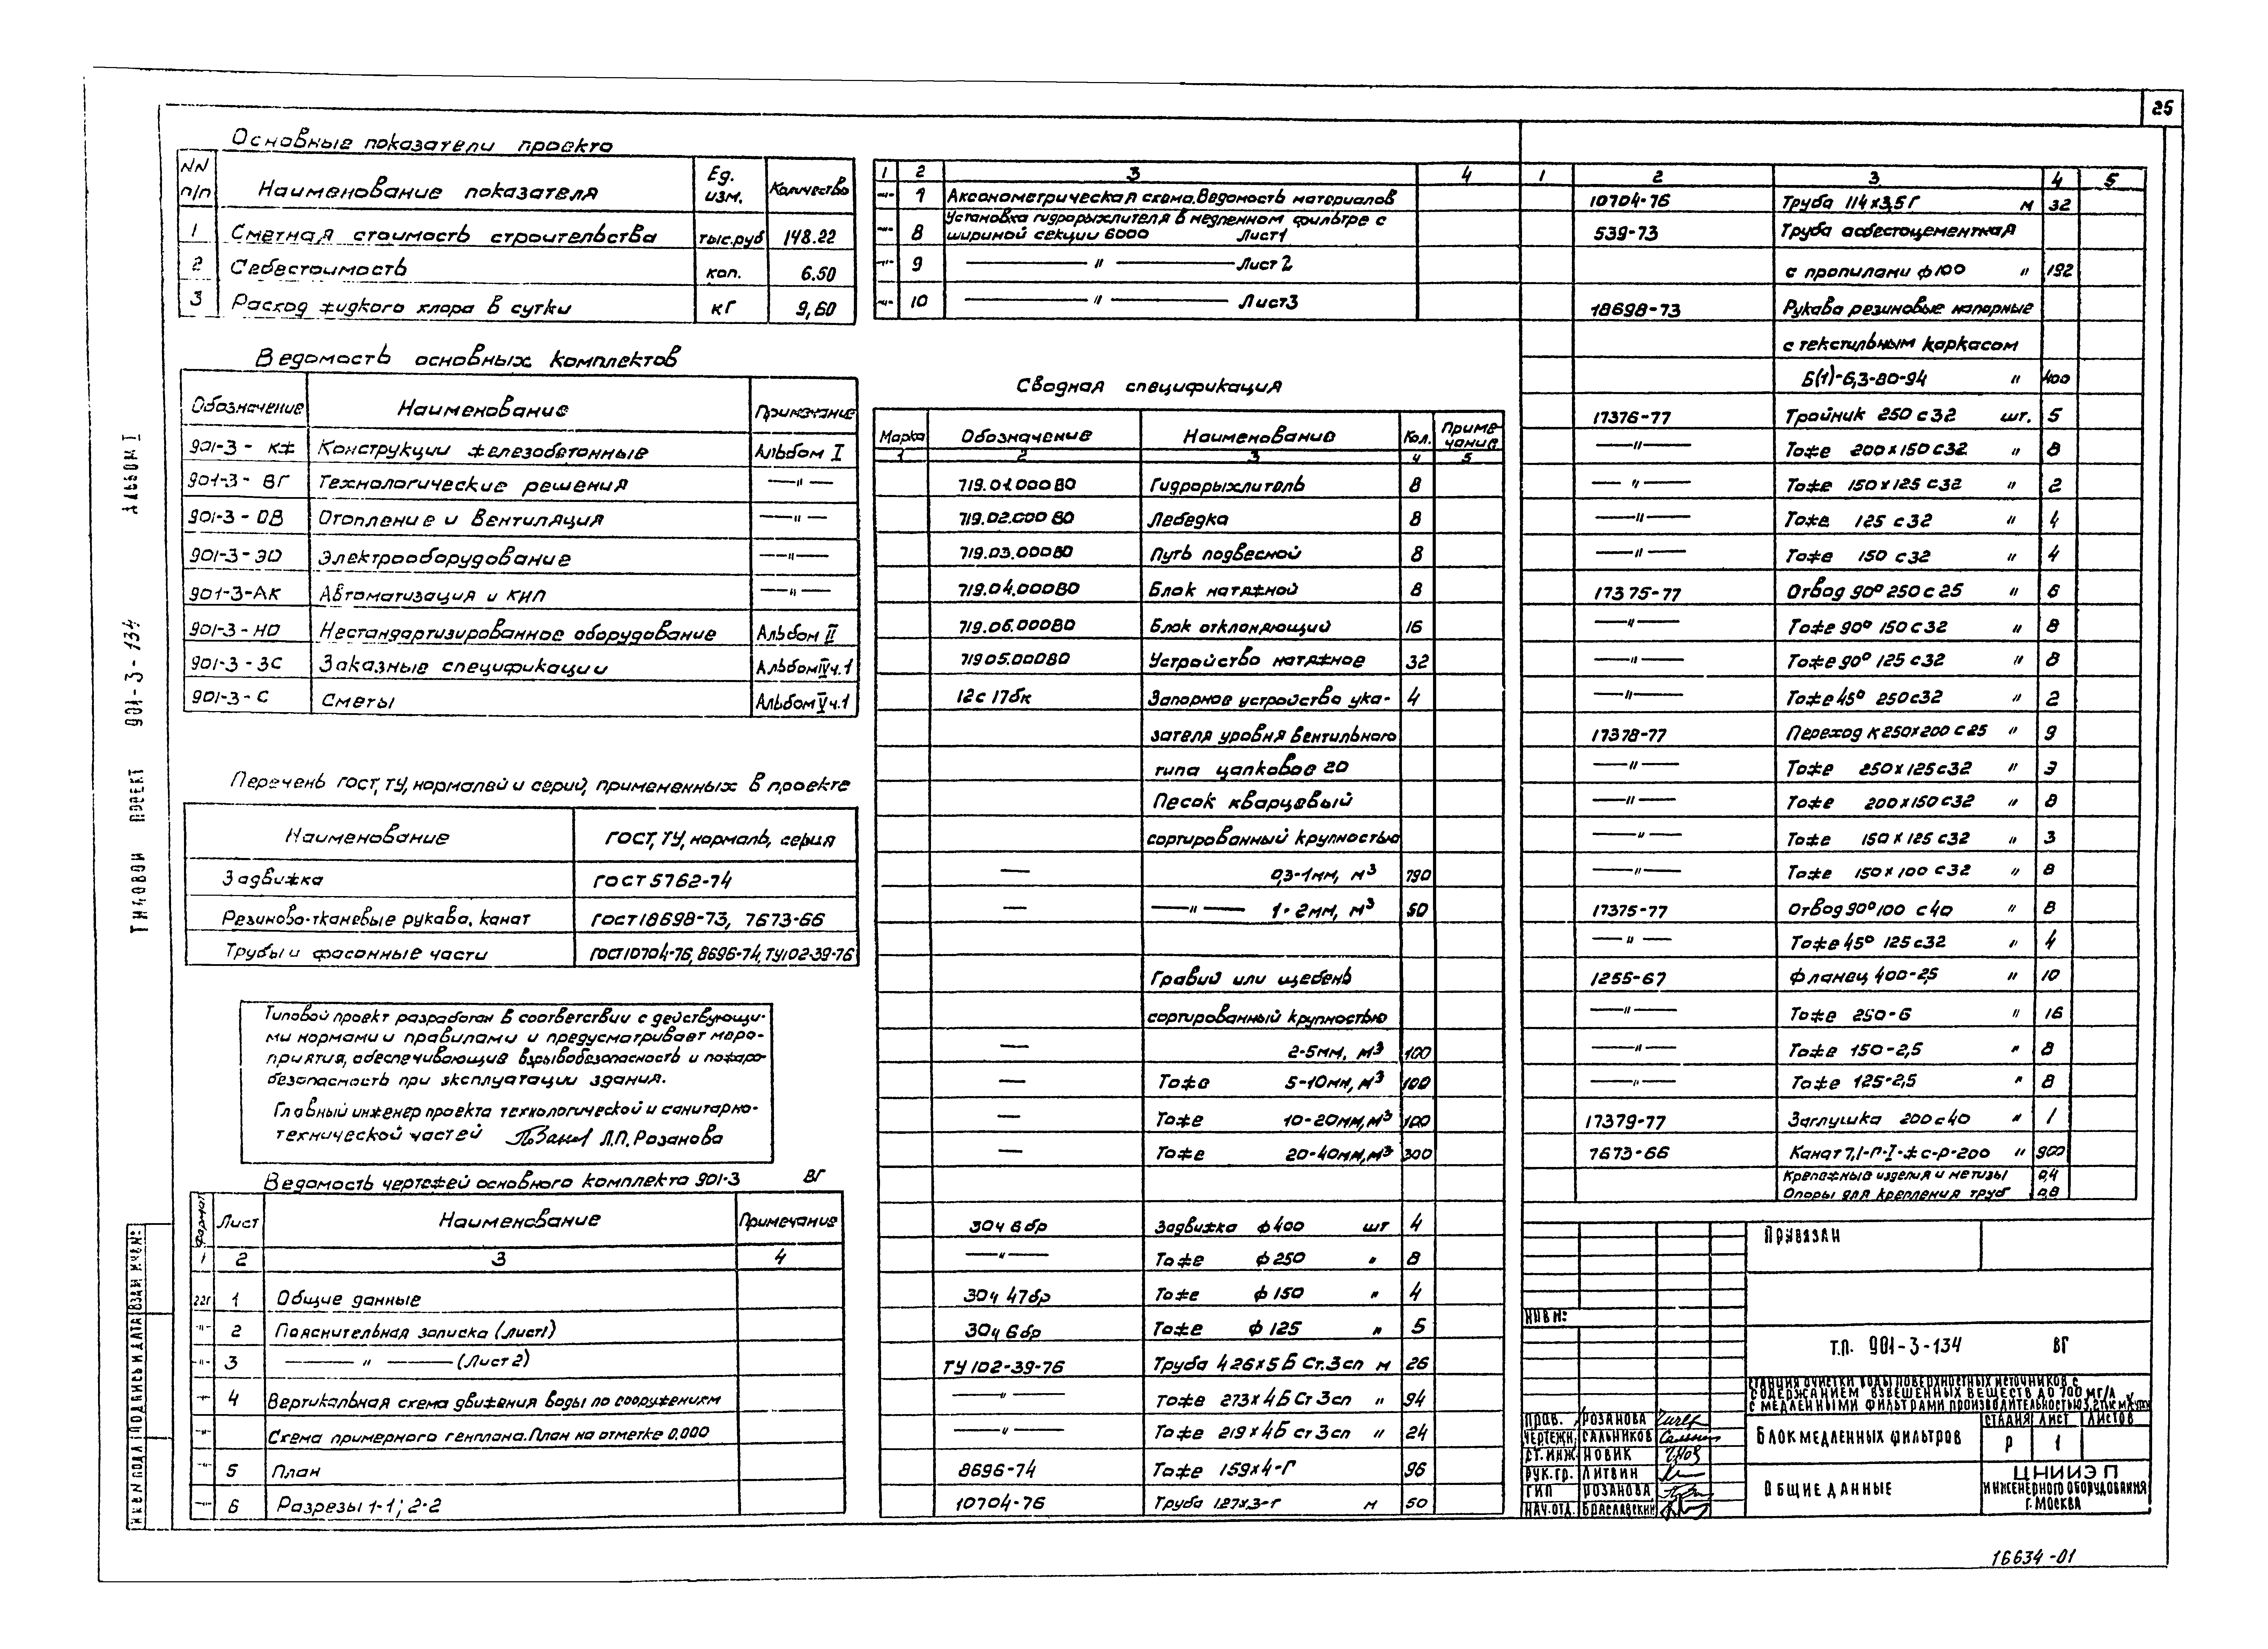 25
Основные показатели проекта
NN п/п Наименование показателя Ед. изм. Количество
1 Сметная стоимость строительства тыс.руб 148.22
2 Себестоимость коп. 6.50
3 Расход жидкого хлора в сутки кг 9,60
Ведомость основных комплектов
Обозначение Наименование Примечание
901-3-КЖ Конструкции железобетонные Альбом I
901-3-ВГ Технологические решения —"—
901-3-ОВ Отопление и вентиляция —"—
901-3-ЭО Электрооборудование —"—
901-3-АК Автоматизация и КИП —"—
901-3-НО Нестандартизированное оборудование Альбом II
901-3-ЗС Заказные спецификации Альбом IV ч.1
901-3-С Сметы Альбом V ч.1
Перечень ГОСТ, ТУ, нормалей и серий, примененных в проекте
Наименование ГОСТ, ТУ, нормаль, серия
Задвижка ГОСТ 5762-74
Резиново-тканевые рукава, канат ГОСТ 18698-73, 7673-66
Трубы и фасонные части ГОСТ 10704-76, 8696-74, ТУ 102-39-76
Типовой проект разработан в соответствии с действующи-
ми нормами и правилами и предусматривает меро-
приятия, обеспечивающие взрывобезопасность и пожаро-
безопасность при эксплуатации здания.
Главный инженер проекта технологической и санитарно-
технической частей Л.П. Розанова
Ведомость чертежей основного комплекта 901-3 ВГ
Формат Лист Наименование Примечание
1 2 3 4
22г 1 Общие данные
-"- 2 Пояснительная записка (лист1)
-"- 3 —— " —— (Лист 2)
-"- 4 Вертикальная схема движения воды по сооружениям
-"- Схема примерного генплана. План на отметке 0,000
-"- 5 План
-"- 6 Разрезы 1-1; 2-2
1 2 3 4
-"- 7 Аксонометрическая схема. Ведомость материалов
Установка гидрорыхлителя в медленном фильтре с
-"- 8 шириной секции 6000 Лист1
-"- 9 —— " —— Лист 2
-"- 10 —— " —— Лист3
Сводная спецификация
Марка Обозначение Наименование Кол. Приме-чание
1 2 3 4 5
719.01.000 80 Гидрорыхлитель 8
719.02.000 80 Лебедка 8
719.03.000 80 Путь подвесной 8
719.04.000 80 Блок натяжной 8
719.06.000 80 Блок отклоняющий 16
719 05.000 80 Устройство натяжное 32
12с 17бк Запорное устройство ука- 4
зателя уровня вентильного
типа цапковое 20
Песок кварцевый
сортированный крупностью
— 0,3-1мм, м³ 790
— —"— 1-2мм, м³ 50
Гравий или щебень
сортированный крупностью
— 2-5мм, м³ 100
— Тоже 5-10мм, м³ 100
— Тоже 10-20мм, м³ 100
— Тоже 20-40мм, м³ 300
30ч 6бр Задвижка ф400 шт 4
—"— Тоже ф250 " 8
30ч 47бр Тоже ф150 " 4
30ч 6бр Тоже ф125 " 5
ТУ 102-39-76 Труба 426х5 Б Ст.3сп м 26
—"— Тоже 273х4Б Ст 3сп " 94
—"— Тоже 219х4Б ст 3сп " 24
8696-74 Тоже 159х4-Г 96
10704-76 Труба 127х3-г м 50
1 2 3 4 5
10704-76 Труба 114х3,5 Г м 32
539-73 Труба асбестоцементная
с пропилами ф100 " 192
18698-73 Рукава резиновые напорные
с текстильным каркасом
Б(1)-6,3-80-94 " 400
17376-77 Тройник 250 с 32 шт. 5
—"— Тоже 200х150 с32 " 8
—"— Тоже 150х125 с32 " 2
—"— Тоже 125 с 32 " 4
—"— Тоже 150 с 32 " 4
17375-77 Отвод 90° 250 с 25 " 6
—"— Тоже 90° 150 с 32 " 8
—"— Тоже 90° 125 с 32 " 8
—"— Тоже 45° 250 с32 " 2
17378-77 Переход К 250х200 с 25 " 9
—"— Тоже 250х125 с32 " 3
—"— Тоже 200х150 с32 " 8
—"— Тоже 150х125 с32 " 3
—"— Тоже 150х100 с32 " 8
17375-77 Отвод 90° 100 с 40 " 8
—"— Тоже 45° 125 с32 " 4
1255-67 Фланец 400-2,5 " 10
—"— Тоже 250-6 " 16
—"— Тоже 150-2,5 " 8
—"— Тоже 125-2,5 " 8
17379-77 Заглушка 200 с 40 " 1
7673-66 Канат 7,1-Г-I-ж с-р-200 " 960
Крепежные изделия и метизы 0,4
Опоры для крепления труб 0,8
Привязан
Инв №:
Т.П. 901-3-134 ВГ
Станция очистки воды поверхностных источников с
содержанием взвешенных веществ до 700 мг/л
с медленными фильтрами производительностью 3,2 тыс м³/сут
Блок медленных фильтров
Стадия Лист Листов
Р 1
Общие данные
ЦНИИЭП
инженерного оборудования
г. Москва
Пров. Розанова
Чертежн. Сальников
Ст. инж Новик
Рук. гр. Литвин
ГИП Розанова
Нач. отд. Браславский
16634-01
Типовой проект 901-3-134 Альбом I
Инв № подл Подпись и дата Взам. инв. №: